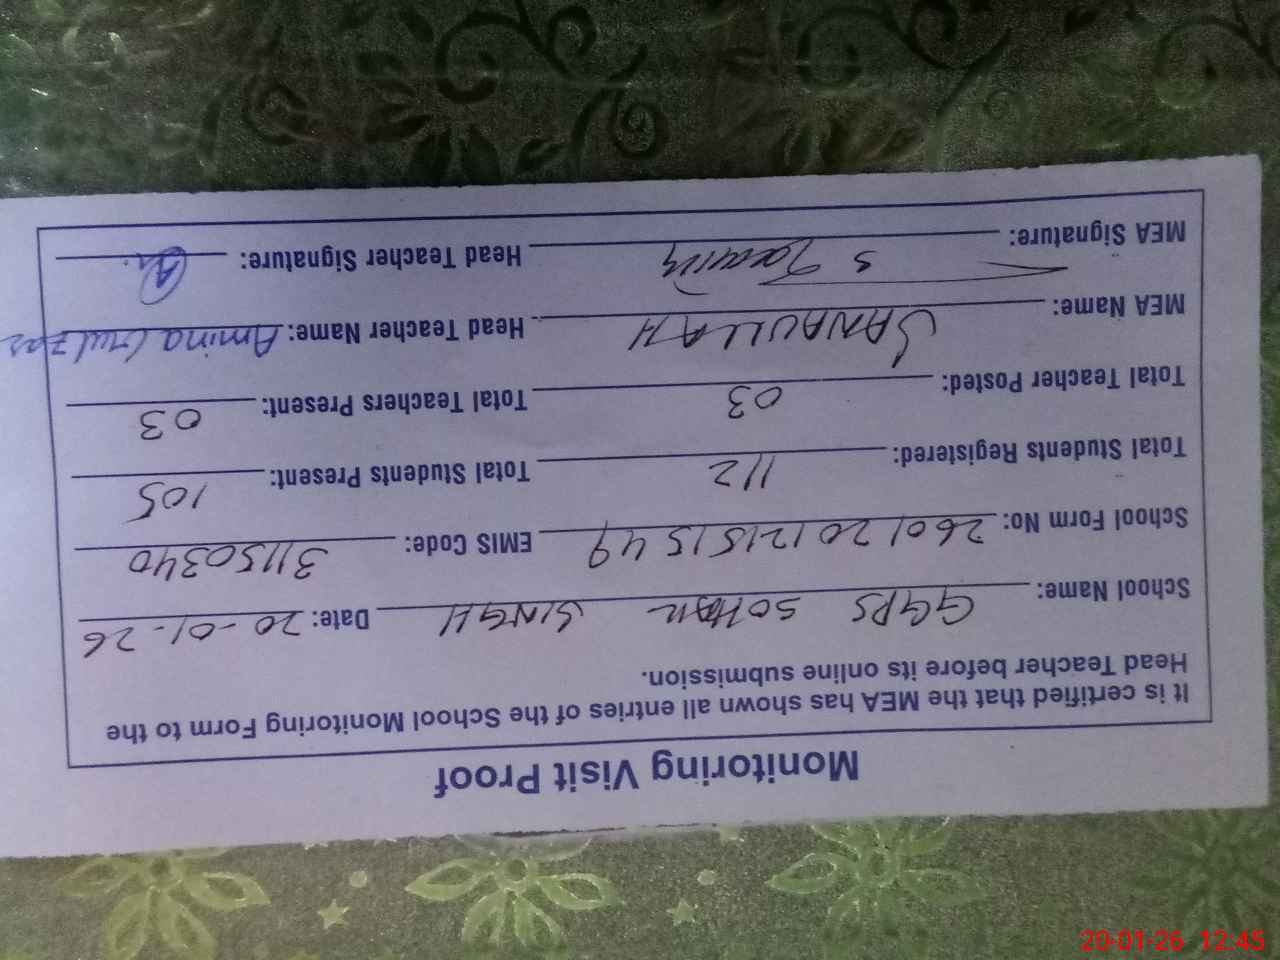 Monitoring Visit Proof
It is certified that the MEA has shown all entries of the School Monitoring Form to the
Head Teacher before its online submission.
School Name: GGPS SOHAN SINGH Date: 20-01-26
School Form No: 26012012151549 EMIS Code: 31150340
Total Students Registered: 112 Total Students Present: 105
Total Teacher Posted: 03 Total Teachers Present: 03
MEA Name: SANAULLAH Head Teacher Name: Amina Gulzar
MEA Signature: Head Teacher Signature:
20-01-26 12:45